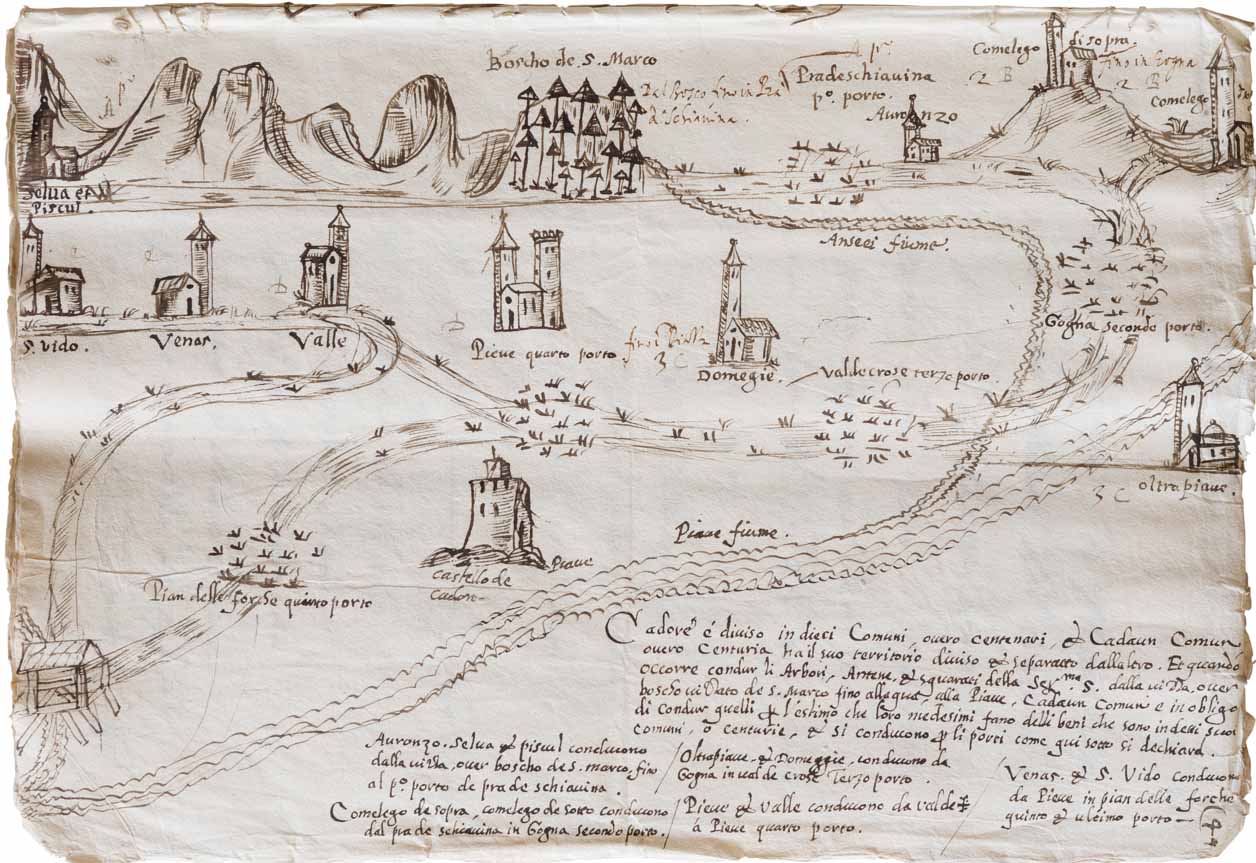 Boscho de S. Marco
A p.º
Pradeschiauina
pº. porto.
Dal bosco fino in Pra
di schiauina.
Auronzo
Comelego di sopra
fino in Gogna
2 B
2 B
Comelego
Selua et
Piscul.
Anseei fiume.
Gogna secondo porto.
S. vido.
Venas.
Valle
Pieue quarto porto
3 C
Domegie.
Valdecrose terzo porto.
oltrapiaue.
3 C
Piaue fiume.
Castello de
Cadore
Piaue
Pian delle forche quinto porto
Cadore é diuiso in dieci Comuni, ouero centenari, & Cadaun Comun
ouero Centuria ha il suo territorio diuiso & separatto dall altro. Et quando
occorre condur li Arbori, Antene, & squarati della Ser.ma S. dalla uizza, ouer
boscho uizzato de S. Marco fino all equa, alla Piaue, Cadaun Comun e in obligo
di condur quelli p l'estimo che loro medesimi fano delli beni che sono in dessi suoi
comuni, o centurie, & si conducono p li porti come qui sotto si dechiara.
Auronzo. Selua & piscul conducono
dalla uizza, ouer boscho de S. marco, fino
al pº. porto de pra de schiauina.
Comelego de sopra, comelego de sotto conducono
dal pra de schiauina in Gogna secondo porto.
Oltrapiaue & Domeggie, conducono da
Gogna in ual de crose Terzo porto.
Pieue & Valle conducono da valde
á Pieue quarto porto.
Venas. & S. Vido conducono
da Pieue in pian delle forche
quinto & ultimo porto